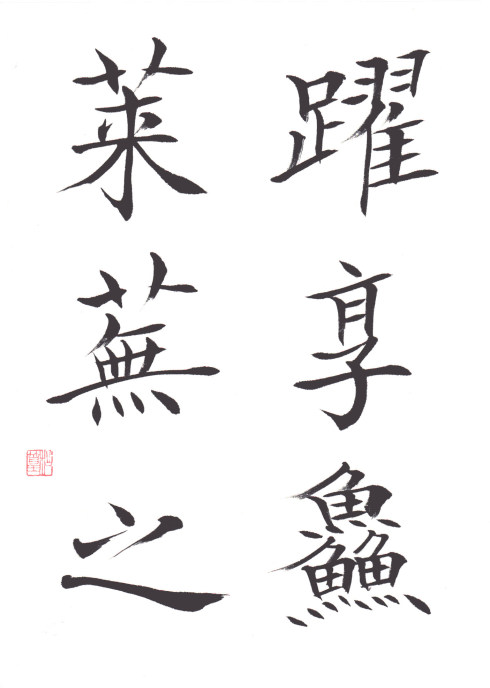 躍享鱻
萊蕪之